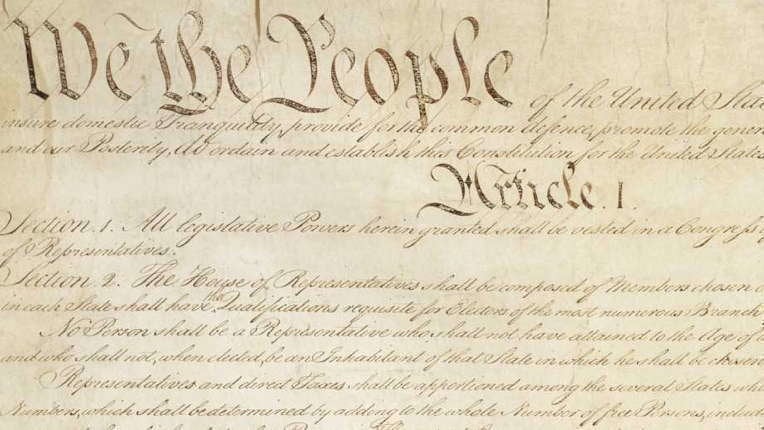 We the People of the United Stat
insure domestic Tranquility, provide for the common defence, promote the gener
and our Posterity, do ordain and establish this Constitution for the United States
Article. I.
Section. 1. All legislative Powers herein granted shall be vested in a Congress
of Representatives.
Section. 2. The House of Representatives shall be composed of Members chosen
in each State shall have the Qualifications requisite for Electors of the most numerous Branch
No Person shall be a Representative who shall not have attained to the Age of
and who shall not, when elected, be an Inhabitant of that State in which he shall be chosen
Representatives and direct Taxes shall be apportioned among the several States
Numbers, which shall be determined by adding to the whole Number of free Persons, includ